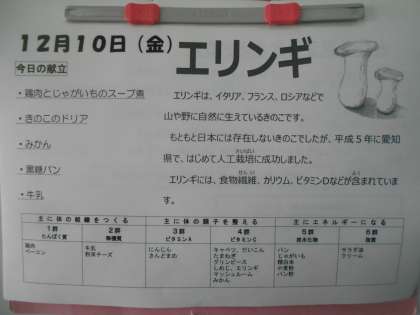 12月10日(金)
エリンギ
今日の献立
・鶏肉とじゃがいものスープ煮
・きのこのドリア
・みかん
・黒糖パン
・牛乳
エリンギは、イタリア、フランス、ロシアなどで
山や野に自然に生えているきのこです。
もともと日本には存在しないきのこでしたが、平成5年に愛知
県で、はじめて人工栽培に成功しました。
エリンギには、食物繊維、カリウム、ビタミンDなどが含まれていま
す。
主に体の組織をつくる 主に体の調子を整える 主にエネルギーになる
1群 2群 3群 4群 5群 6群
たんぱく質 無機質 ビタミンA ビタミンC 炭水化物 脂質
鶏肉 牛乳 にんじん キャベツ、だいこん パン サラダ油
ベーコン 粉末チーズ さんどまめ たまねぎ じゃがいも クリーム
グリンピース 精白米
しめじ、エリンギ 小麦粉
マッシュルーム パン粉
みかん